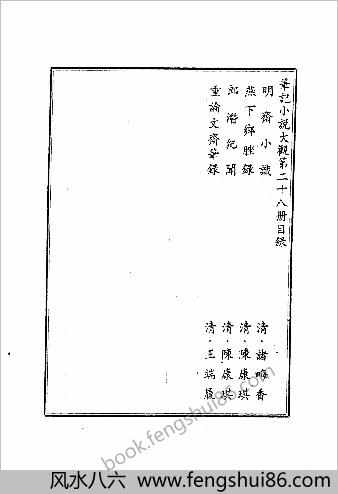 筆記小説大觀第二十八册目録
明齋小識 清·諸畹香
燕下鄉脞録 清·陳康祺
郎潛紀聞 清·陳康祺
重論文齋筆録 清·王端履
book.fengshui86.com
风水八六 www.fengshui86.com